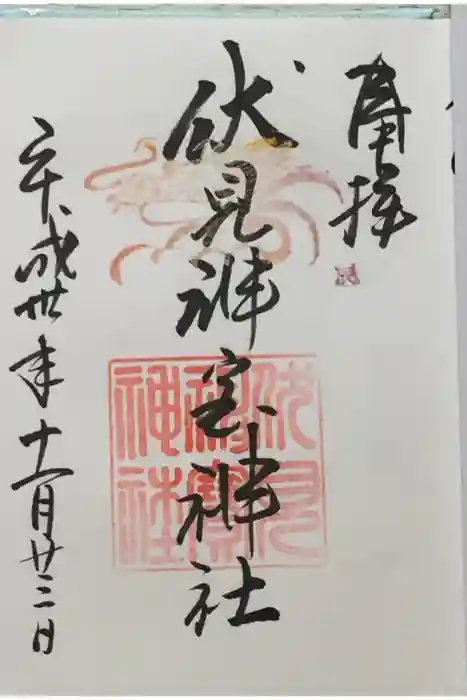 奉拝
伏見神宝神社
平成卅年十一月廿三日
伏見
神寶
神社